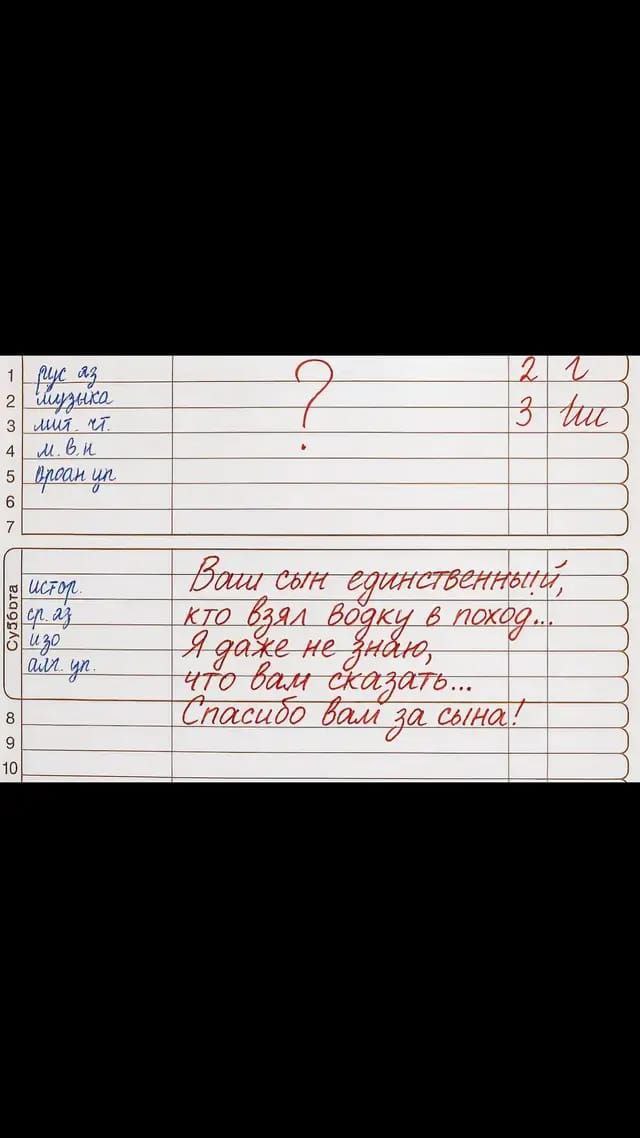 1 рус яз ? 2 г
2 музыка
3 мит. чт. 3 Ши
4 м.в.н
5 ароан уп
6
7
Суббота
истор.
ср. аз
изо
алг. уп.
Ваш сын единственный,
кто взял водку в поход...
Я даже не знаю,
что вам сказать...
Спасибо вам за сына!
8
9
10